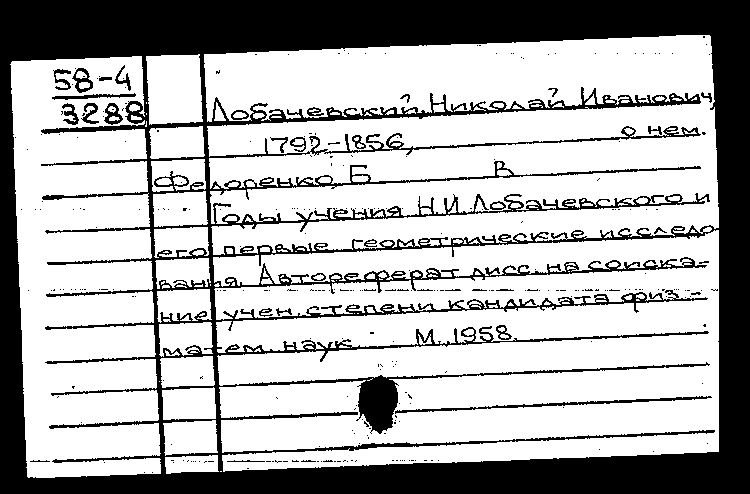 58-4
3288
Лобачевский, Николай Иванович,
1792-1856, о нем.
Федоренко, Б В
Годы учения Н.И. Лобачевского и
его первые геометрические исследо-
вания. Автореферат дисс. на соиска-
ние учен. степени кандидата физ.-
матем. наук М., 1958.